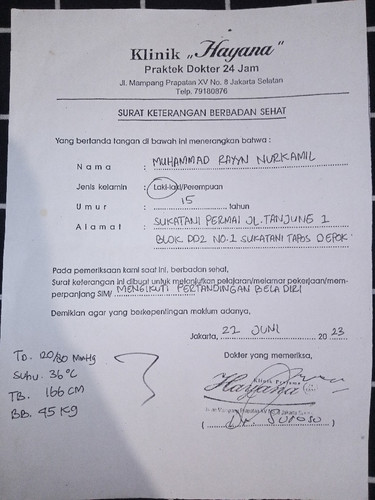 Klinik „Hayana"
Praktek Dokter 24 Jam
Jl. Mampang Prapatan XV No. 8 Jakarta Selatan
Telp. 79180876
SURAT KETERANGAN BERBADAN SEHAT
Yang bertanda tangan di bawah ini menerangkan bahwa :
Nama : MUHAMMAD RAYYN NURKAMIL
Jenis kelamin : Laki-laki/Perempuan
Umur : 15 tahun
Alamat : SUKATANI PERMAI JL. TANJUNG 1
BLOK DD2 NO.1 SUKATANI TAPOS DEPOK
Pada pemeriksaan kami saat ini, berbadan sehat,
Surat keterangan ini dibuat untuk melanjutkan pelajaran/melamar pekerjaan/mem-
perpanjang SIM/ MENGIKUTI PERTANDINGAN BELA DIRI
Demikian agar yang berkepentingan maklum adanya,
Jakarta, 22 JUNI 20 23
Dokter yang memeriksa,
TD. 120/80 MmHg
Suhu. 36°C
TB. 166 CM
BB. 45 Kg
Klinik Pratama
Hayana